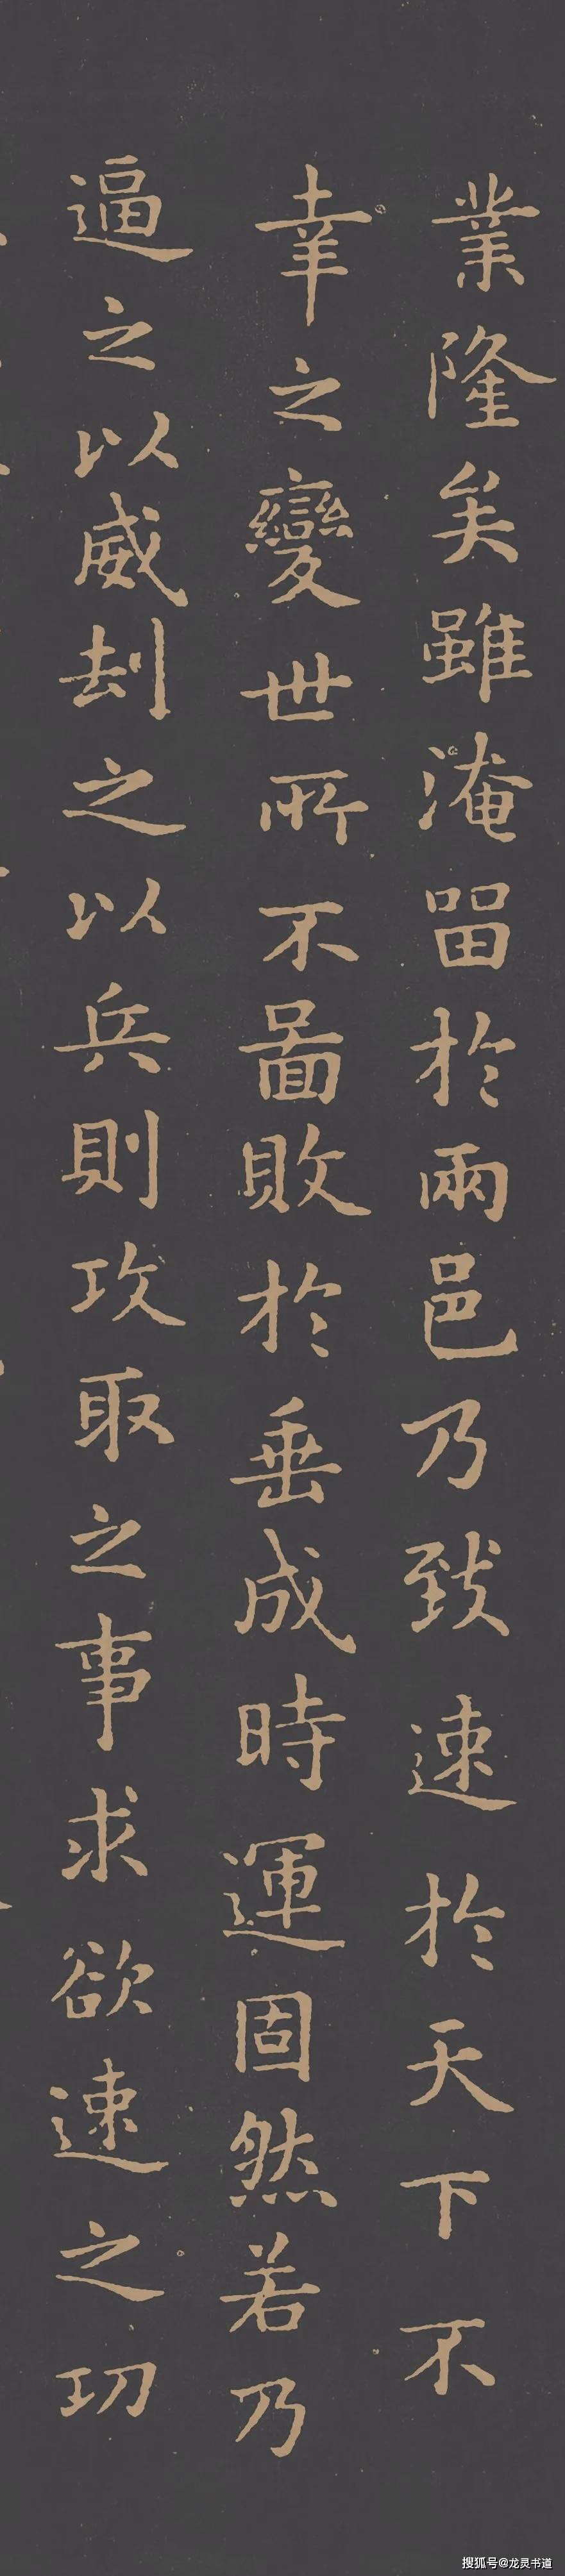 業隆矣雖淹留於兩邑乃致速於天下不
幸之變世所不圖敗於垂成時運固然若乃
逼之以威刼之以兵則攻取之事求欲速之功
搜狐号@龙灵书道